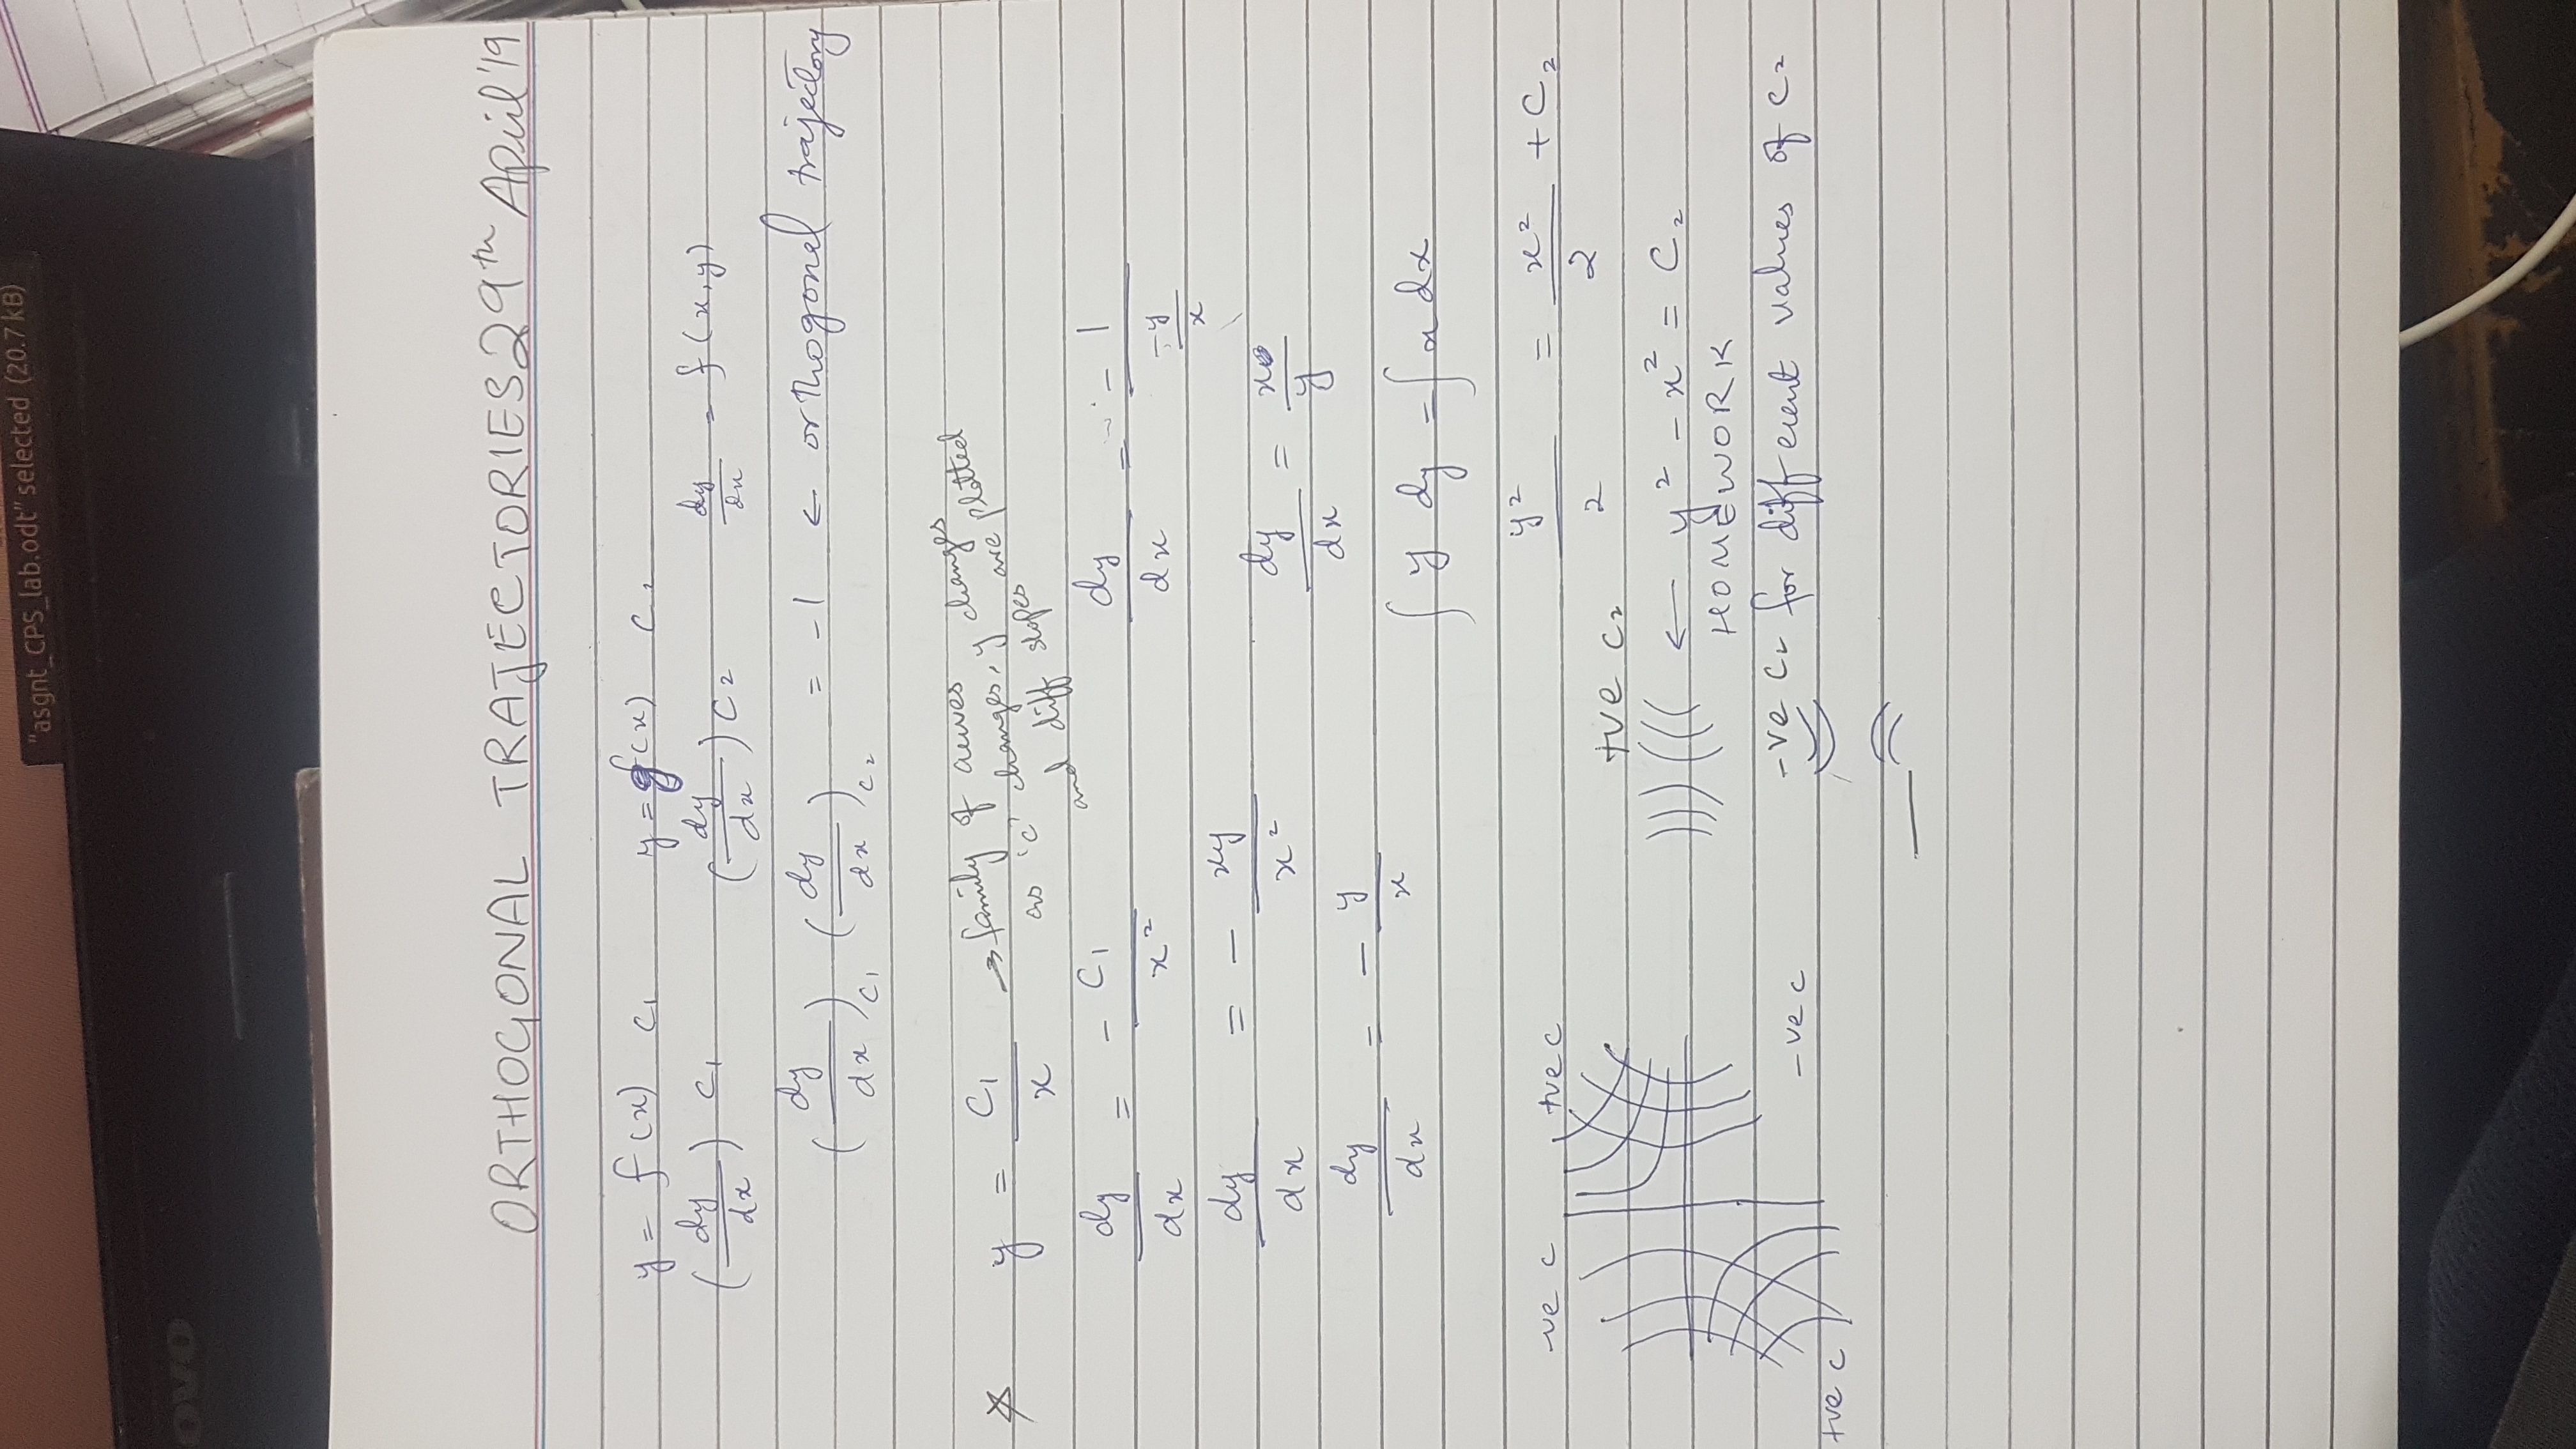 "asgnt_CPS_lab.odt" selected (20.7 kB)
OVO
ORTHOGONAL TRAJECTORIES 29th April '19
y = f(x) C1 y = g(x) C2
(dy/dx) C1 (dy/dx) C2 dy/dx = f(x,y)
(dy/dx)C1 (dy/dx)C2 = -1 ← orthogonal trajectory
y = C1/x → family of curves
as 'c' changes, y changes
and diff slopes are plotted
dy/dx = - C1/x²
dy/dx = - xy/x²
dy/dx = - y/x
dy/dx = - 1/(-y/x)
dy/dx = x/y
∫ y dy = ∫ x dx
y²/2 = x²/2 + C2
-ve c +ve c
+ve c -ve c
+ve C2
← y² - x² = C2
HOMEWORK
-ve C2 for different values of C2